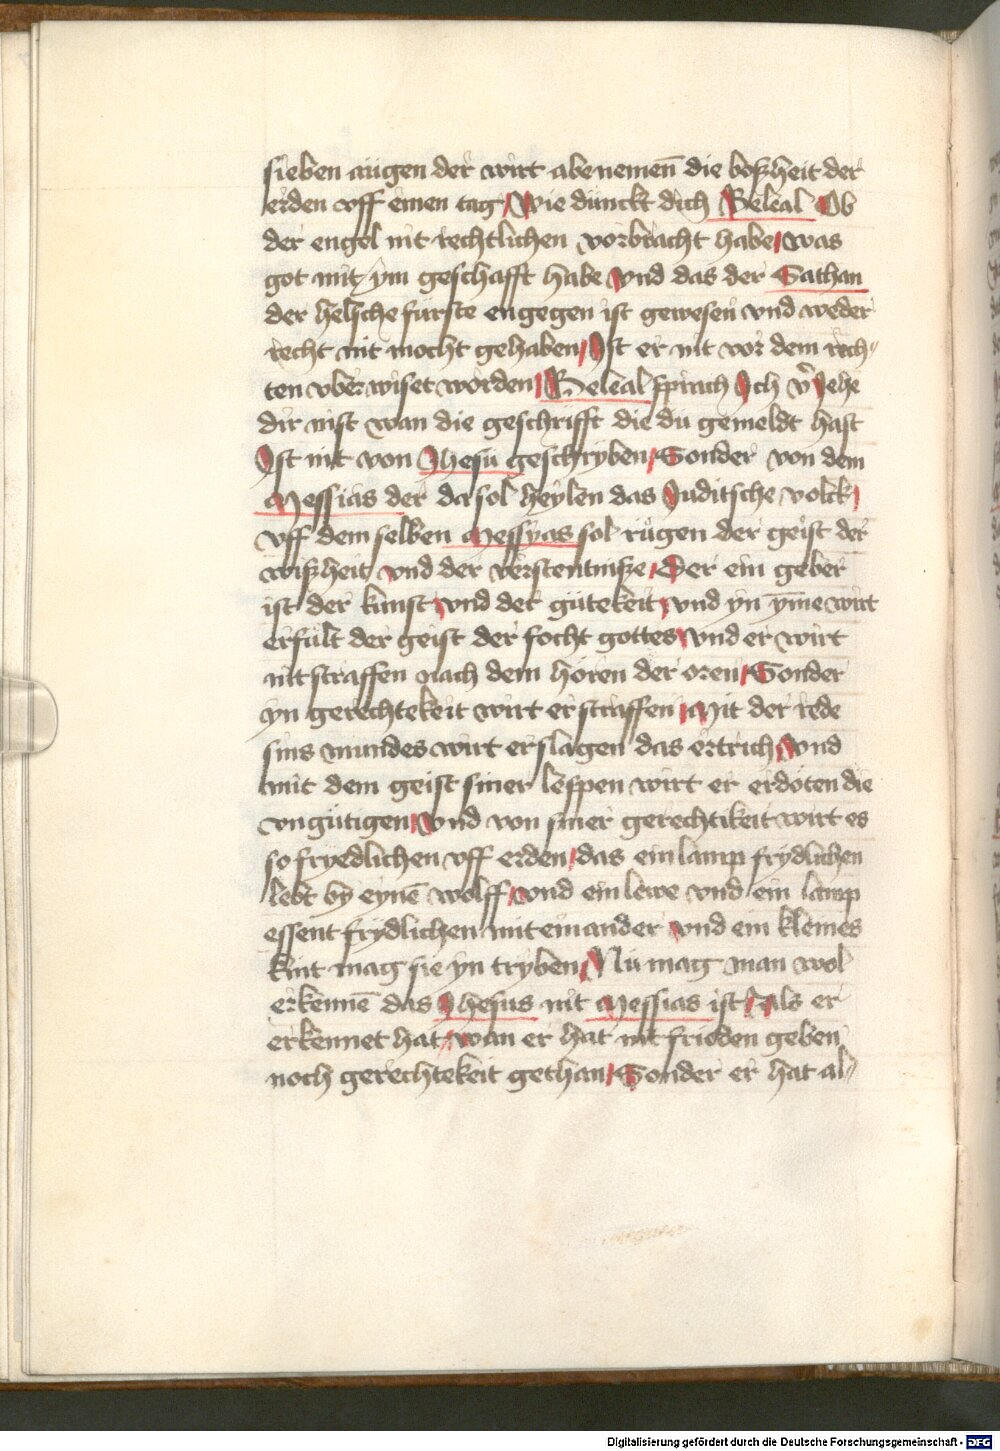 sieben augen der wirt abenemen̄ die boßheit der
erden vff einen tag / Wie dunckt dich Beleal Ob
der engel nit rechtlichen vorbracht habe / was
got mit ym geschafft habe Vnd das der Sathan
der helsche furste engegen ist gewesen vnd weder
recht nit mocht gehaben / Ist er nit vor dem rech〃
ten vberwiset worden / Beleal sprach Ich v̄ Jehe
dir nist wan die geschrifft die du gemeldt hast
Ist nit von Jhesu geschryben / Sonder von dem
Messias der da sol heylen das Juditsche volck /
vff dem selben Messyas sol rugen der geist der
wißheit vnd der verstentniße / Der ein geber
ist der kunst vnd der gutekeit / vnd yn ym̄e wirt
erfult der geist der focht gottes / vnd er wirt
nit straffen nach dem horen der oren / Sonder
yn gerechtekeit wirt er straffen / Mit der rede
sins mundes wirt er slagen das ertrich / Vnd
mit dem geist siner lespen wirt er erdoten die
vngutigen / Vnd von siner gerechtikeit wirt es
so fryedlichen vff erden / das ein lamp frydlichen
lebt by eynē wolff / vnd ein lewe vnd ein lamp
essent frydlichen mit einander vnd ein kleines
kint mag sie yn tryben / Nu mag man wol
erkennē das Jhesus nit Messias ist / Als er
erkennet hat / wan er hat nit frieden geben
noch gerechtekeit gethan / Sonder er hat al〃
Digitalisierung gefördert durch die Deutsche Forschungsgemeinschaft - DFG